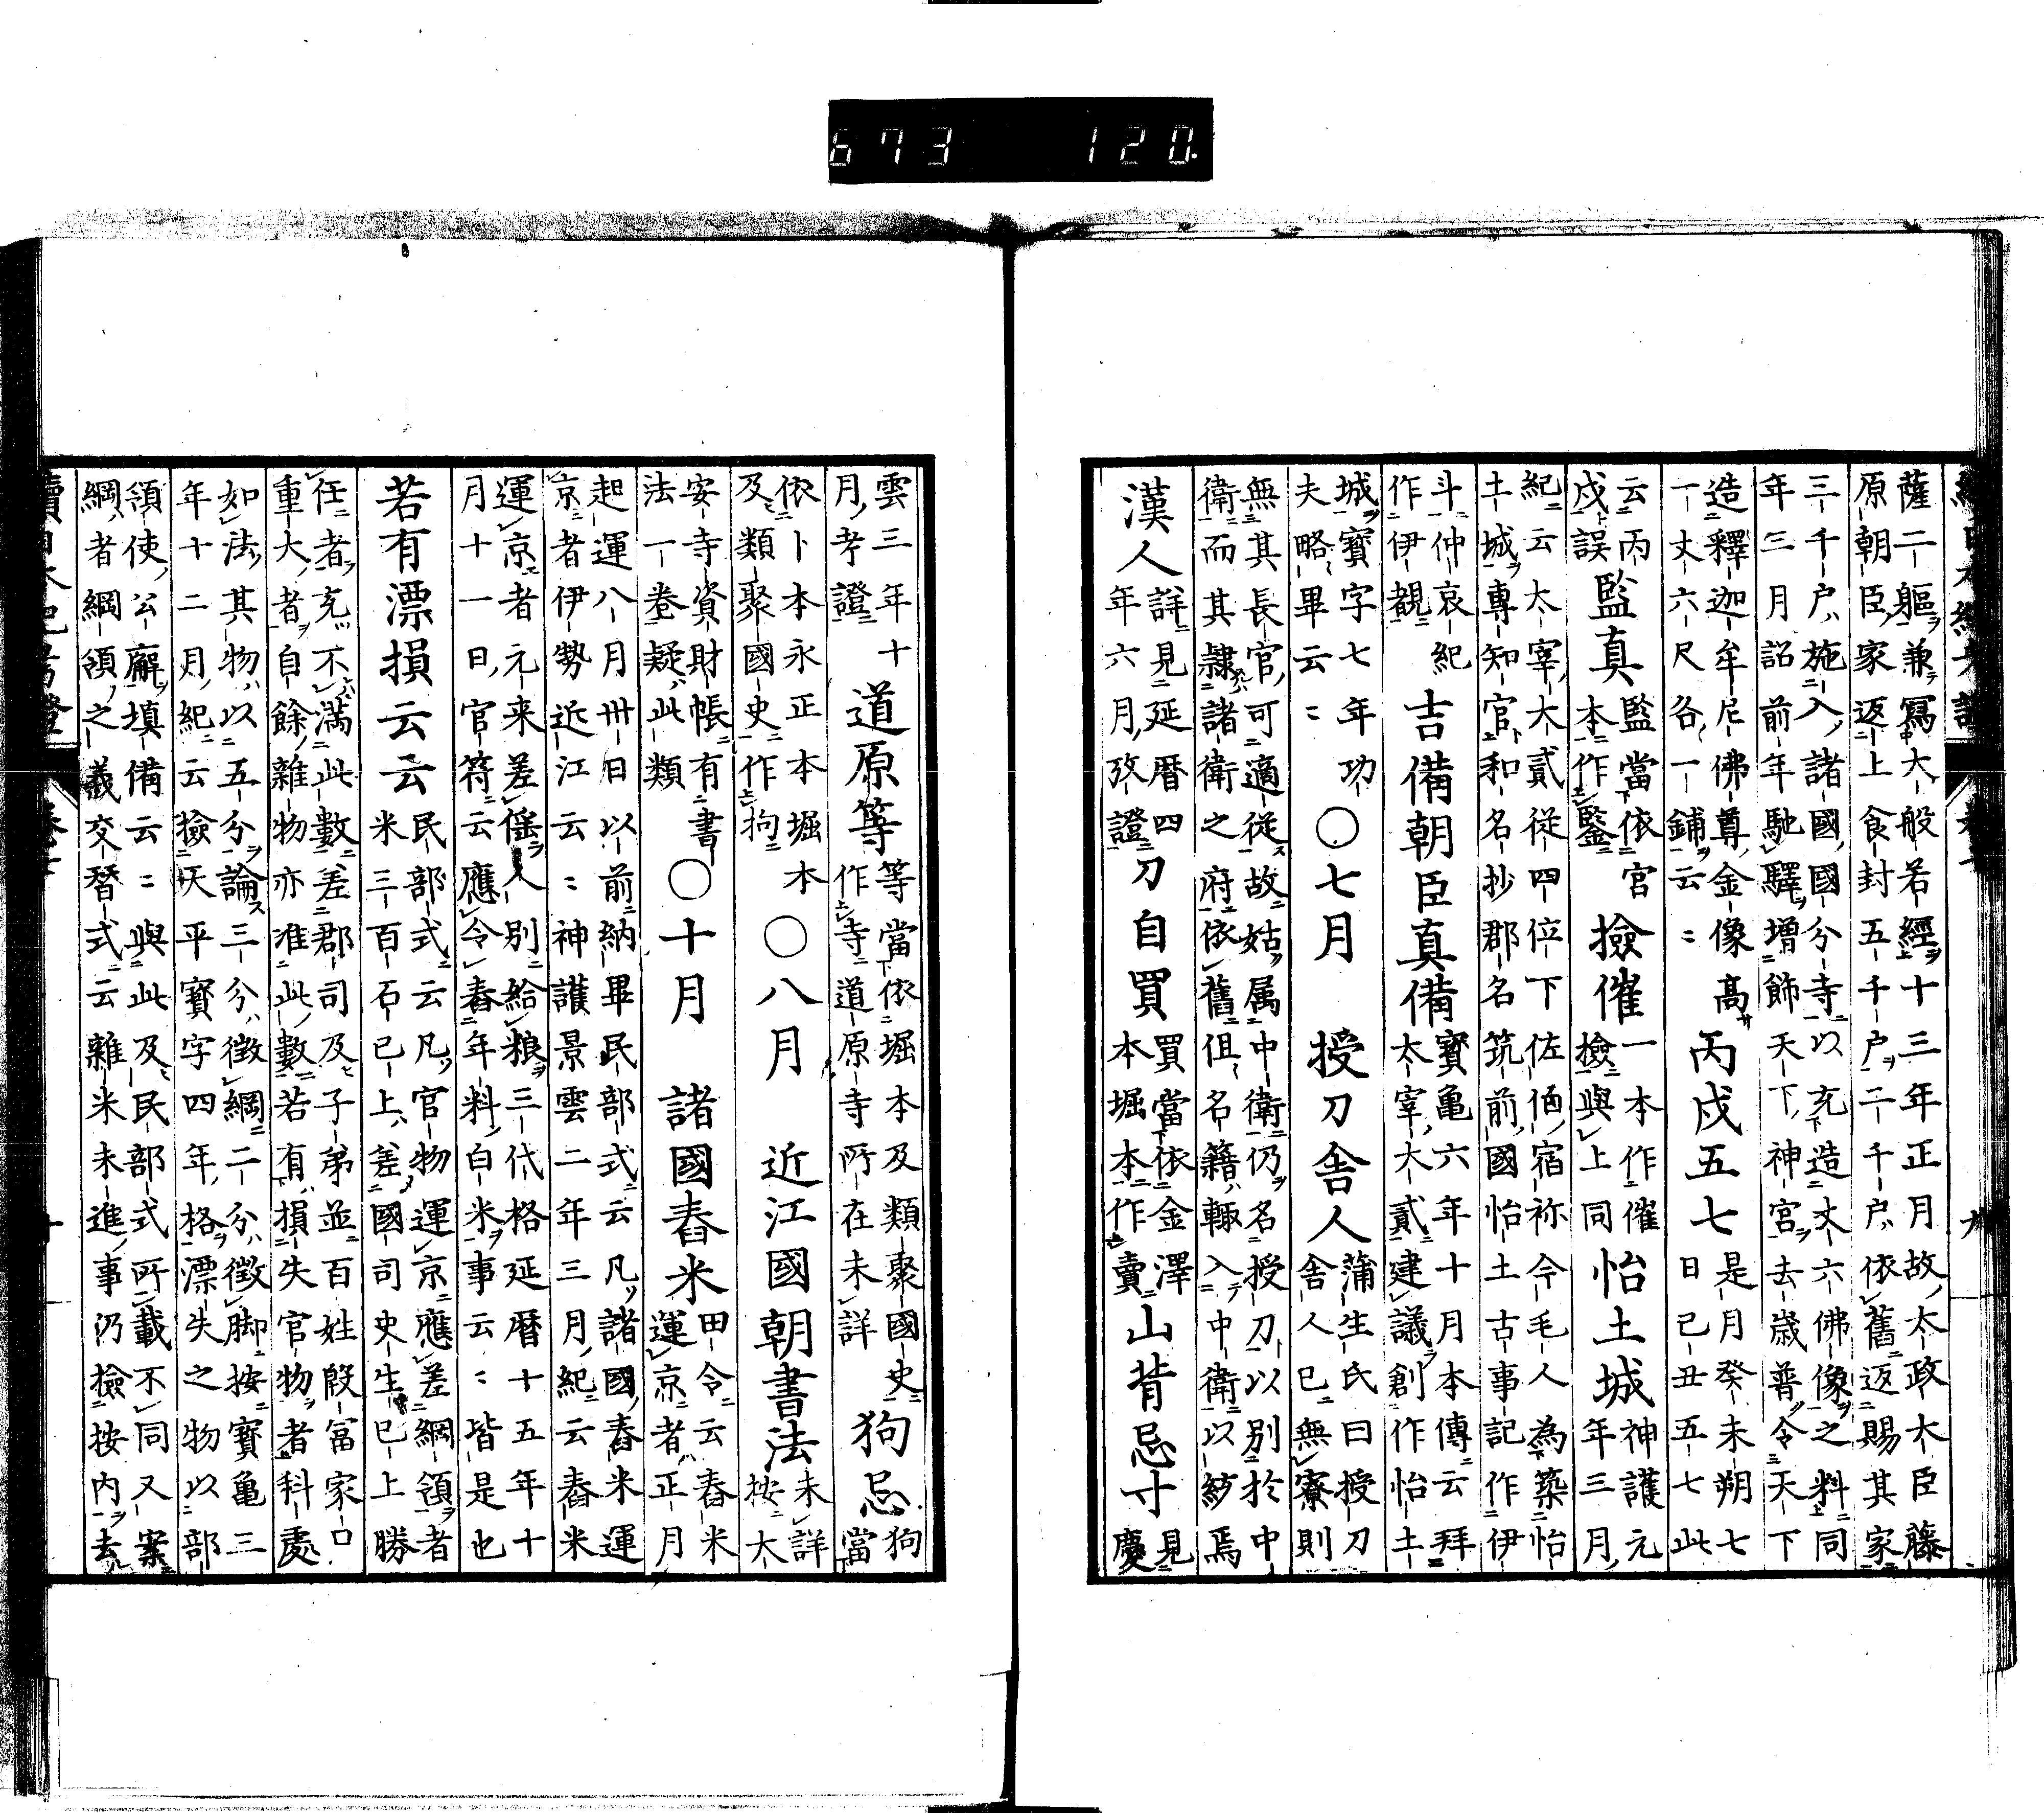 673 120.
薩二軀兼寫大般若經十三年正月故太政大臣藤
原朝臣家返上食封五千戶二千戶依舊返賜其家
三千戶施入諸國國分寺以充造丈六佛像之料同
年三月詔前年馳驛增飾天下神宮去歲普令天下
造釋迦牟尼佛尊金像高
一丈六尺各一鋪云〻
丙戌五七
是月癸未朔七
日己丑五七此
云丙
戌誤
監真
監當依官
本作鑒
撿催
一本作催
撿與上同
怡土城
神護元
年三月
紀云太宰大貳從四位下佐伯宿祢今毛人為築怡
土城專知官和名抄郡名筑前國怡土古事記作伊
斗仲哀紀
作伊覩
吉備朝臣真備
寳亀六年十月本傳云拜
太宰大貳建議創作怡土
城寳字七年功
夫略畢云〻
○七月
授刀舍人
蒲生氏曰授刀
舍人已無寮則
無其長官可適從故姑属中衛仍名授刀以別於中
衛而其隷諸衛之府依舊但名籍輙入中衛以紛焉
漢人
詳見延曆四
年六月攷證
刀自買
買當依金澤
本堀本作賣
山背忌寸
見
慶
雲三年十
月考證
道原等
等當依堀本及類聚國史
作寺道原寺所在未詳
狗忌
狗
當
依卜本永正本堀本
及類聚國史作拘
○八月
近江國朝書法
未詳
按大
安寺資財帳有書
法一卷疑此類
○十月
諸國舂米
田令云舂米
運京者正月
起運八月卅日以前納畢民部式云凡諸國舂米運
京者伊勢近江云〻神護景雲二年三月紀云舂米
運京者元来差徭人別給粮三代格延曆十五年十
月十一日官符云應令舂年料白米事云〻皆是也
若有漂損云云
民部式云凡官物運京應差綱領者
米三百石已上差國司史生已上勝
任者充不滿此數差郡司及子弟並百姓殷冨家口
重大者自餘雜物亦准此數若有損失官物者科處
如法其物以五分論三分徵綱二分徵脚按寳亀三
年十二月紀云撿天平寳字四年格漂失之物以部
領使公廨填備云〻與此及民部式所載不同又案
綱者綱領之義交替式云雜米未進事仍撿按内去